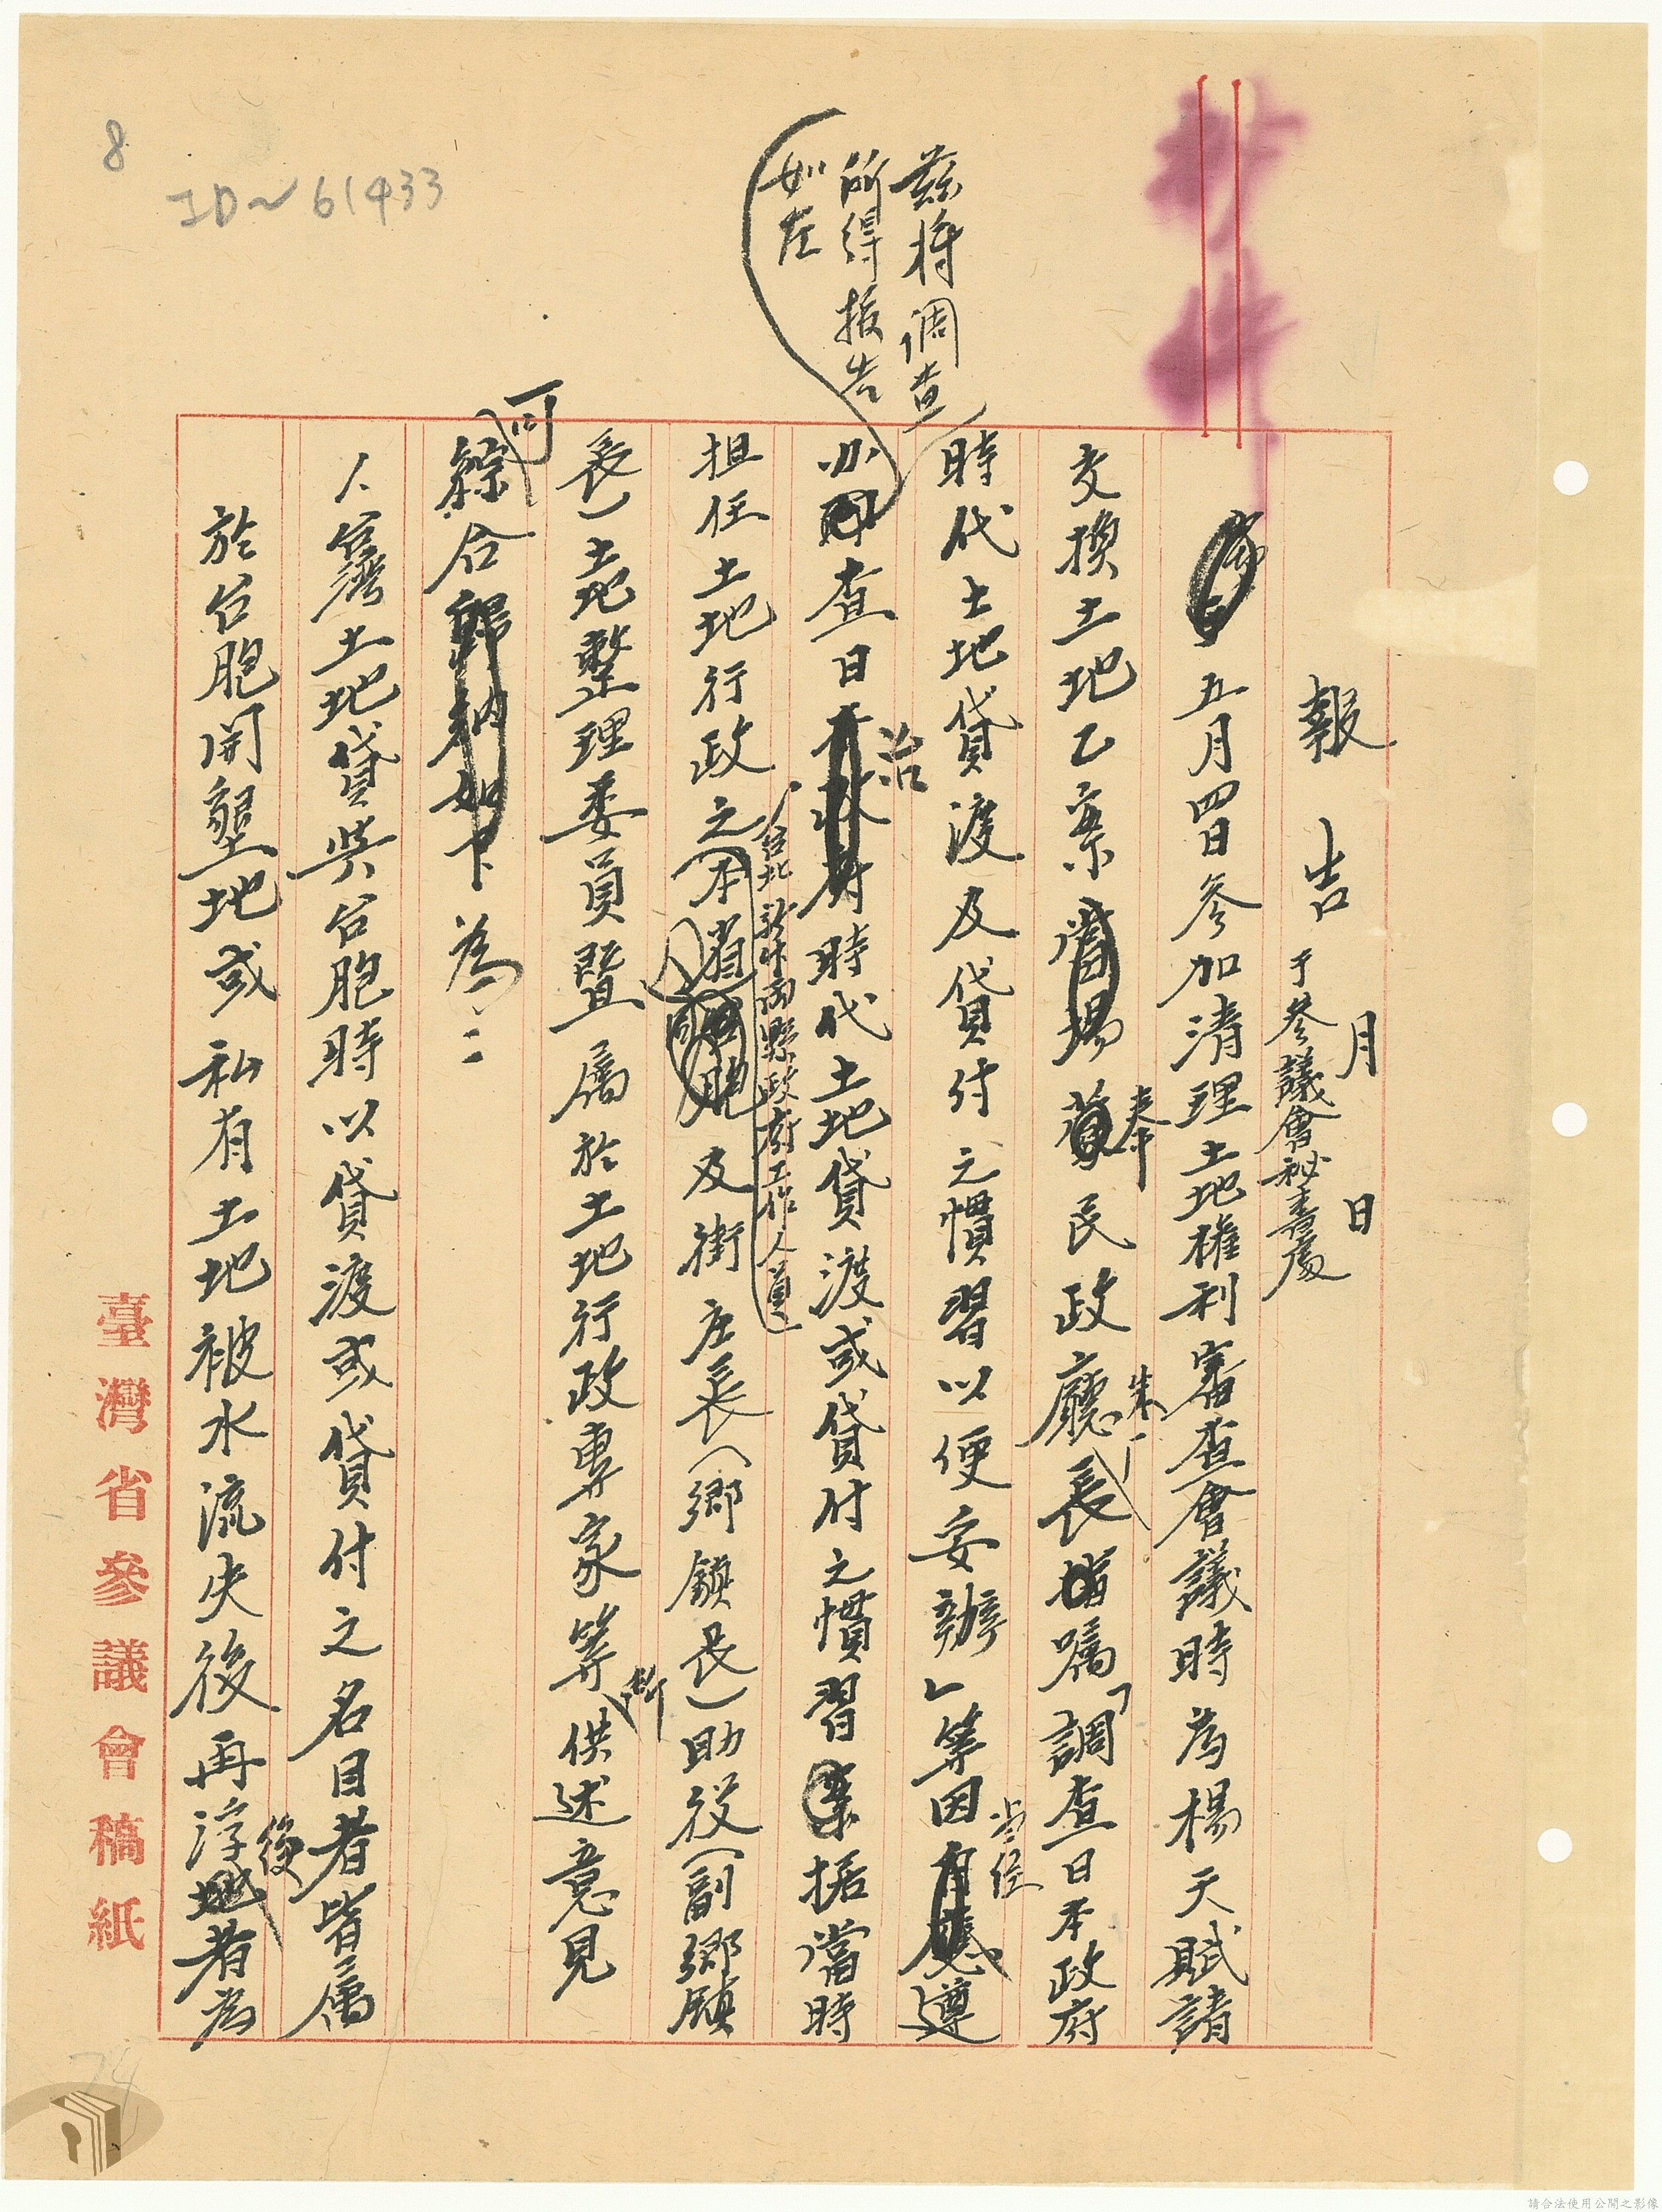 8
ID~61433
抄件
報告 月 日
于參議會秘書處
五月四日參加清理土地權利審查會議時為楊天賦請
交換土地乙案當場奉民政廳朱廳長 囑「調查日本政府
時代土地貸渡及貸付之慣習以便妥辦」等因 當經遵
辦 查日治時代土地貸渡或貸付之慣習 据當時
茲將調查
所得報告
如左
担任土地行政之(台北新竹兩縣政府工作人員)及街庄長(鄉鎮長)助役(副鄉鎮
長)土地整理委員暨属於土地行政專家等所供述意見
綜合 為:
可
1.台灣土地貸與台胞時以貸渡或貸付之名目者皆属
於台胞開墾地或私有土地被水流失後再浮後者為
臺灣省參議會稿紙
74
請合法使用公開之影像